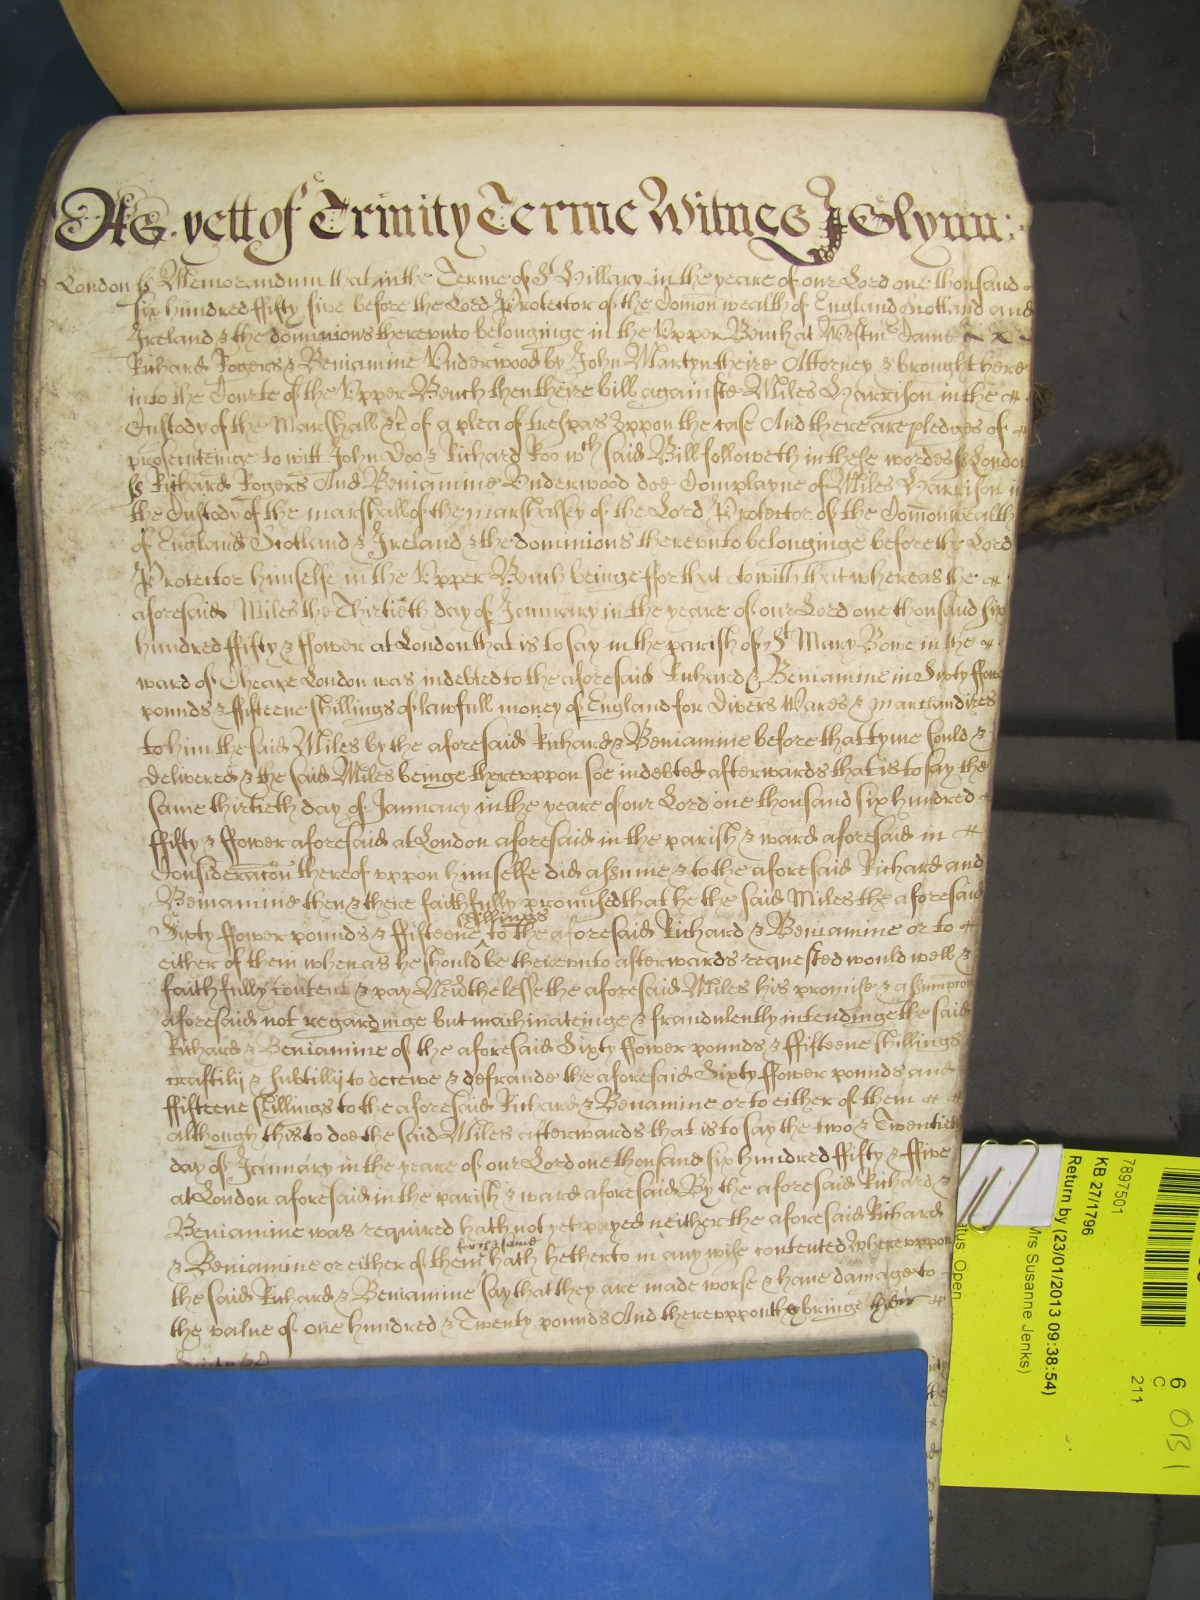 As yett of Trinity Terme Witnes J Glynn:
London ss Memorandum that in the Terme of St Hillary in the yeare of our Lord one thousand
six hundred ffifty five before the Lord Protector of the Comon wealth of England Scotland and
Ireland & the dominions therevnto belonginge in the Vpper Bench at Westmr Came
Richard Rogers & Beniamine Vnderwood by John Martyn theire Attorney & brought here
into the Courte of the Vpper Bench then there bill againste Miles Harrison in the
Custody of the Marshall &c of a plea of trespas vppon the case And there are pledges of
prosecuteinge to witt John Doo & Richard Roo wch said Bill followeth in these wordes ss London
ss Richard Rogers And Beniamine Vnderwood doe Complayne of Miles Harrison in
the Custody of the marshall of the marshalsey of the Lord Protector of the Comonwealth
of England Scotland & Ireland & the dominions therevnto belonginge before the Lord
Protector himselfe in the Vpper Bench beinge ffor that to witt that whereas the
aforesaid Miles the Thirtieth day of January in the yeare of our Lord one thousand six
hundred ffifty & ffower at London that is to say in the parish of St Mary Bowe in the
ward of Cheape London was indebted to the aforesaid Richard & Beniamine in Sixty ffower
pounds & ffifteene shillings of lawfull money of England for divers Wares & marchandizes
to him the said Miles by the aforesaid Richard & Beniamine before that tyme sould &
delivered & the said Miles beinge therevppon soe indebted afterwards that is to say the
same thirtieth day of January in the yeare of our Lord one thousand six hundred
ffifty & ffower aforesaid at London aforesaid in the parish & ward aforesaid in
Consideracon thereof vppon himselfe did assume & to the aforesaid Richard and
Beniamine then & there faithfully promised that he the said Miles the aforesaid
shillings
Sixty ffower pounds & ffifteene to the aforesaid Richard & Beniamine or to
either of them when as he should be therevnto afterwards requested would well &
faithfully content & pay Nevrthelesse the aforesaid Miles his promise & assumpcon
aforesaid not regardinge but machinateinge & fraudulently intendinge the said
Richard & Beniamine of the aforesaid Sixty ffower pounds & ffifteene shillings
craftily & subtilly to deceive & defraude the aforesaid Sixty ffower pounds and
ffifteene shillings to the aforesaid Richard & Benamine or to either of them
although this to doe the said Miles afterwards that is to say the two & Twentieth
day of January in the yeare of our Lord one thousand six hundred ffifty & ffive
at London aforesaid in the parish & ward aforesaid By the aforesaid Richard &
Beniamine was required hath not yet payed neither the aforesaid Richard
for ye same
& Beniamine or either of them hath hetherto in any wise contented Wherevppon
the said Richard & Beniamine say that they are made worse & have damage to
the value of one hundred & Twenty pounds And therevppon they bringe their
7897501
KB 27/1796
Return by (23/01/2013 09:38:54)
Mrs Susanne Jenks)
Open
6
C
211